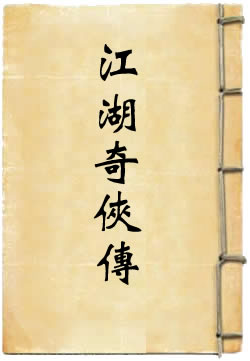 江湖奇俠傳